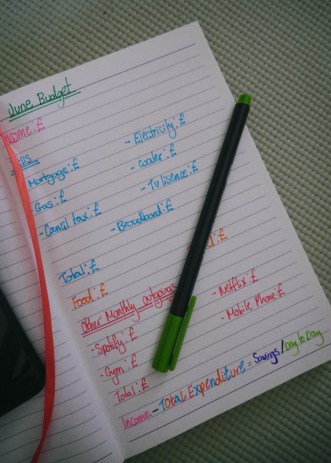 June Budget
Income:£
Bills
- Mortgage:£
- Gas:£
- Council tax:£
- Electricity:£
- Water:£
- Tv lisence:£
- Broadband:£
Total:£
Food:£
:£
Other Monthly outgoings
- Spotify:£
- Gym:£
- Netflix:£
- Mobile Phone:£
Total:£
Income - Total Expenditure = Savings / Day to Day